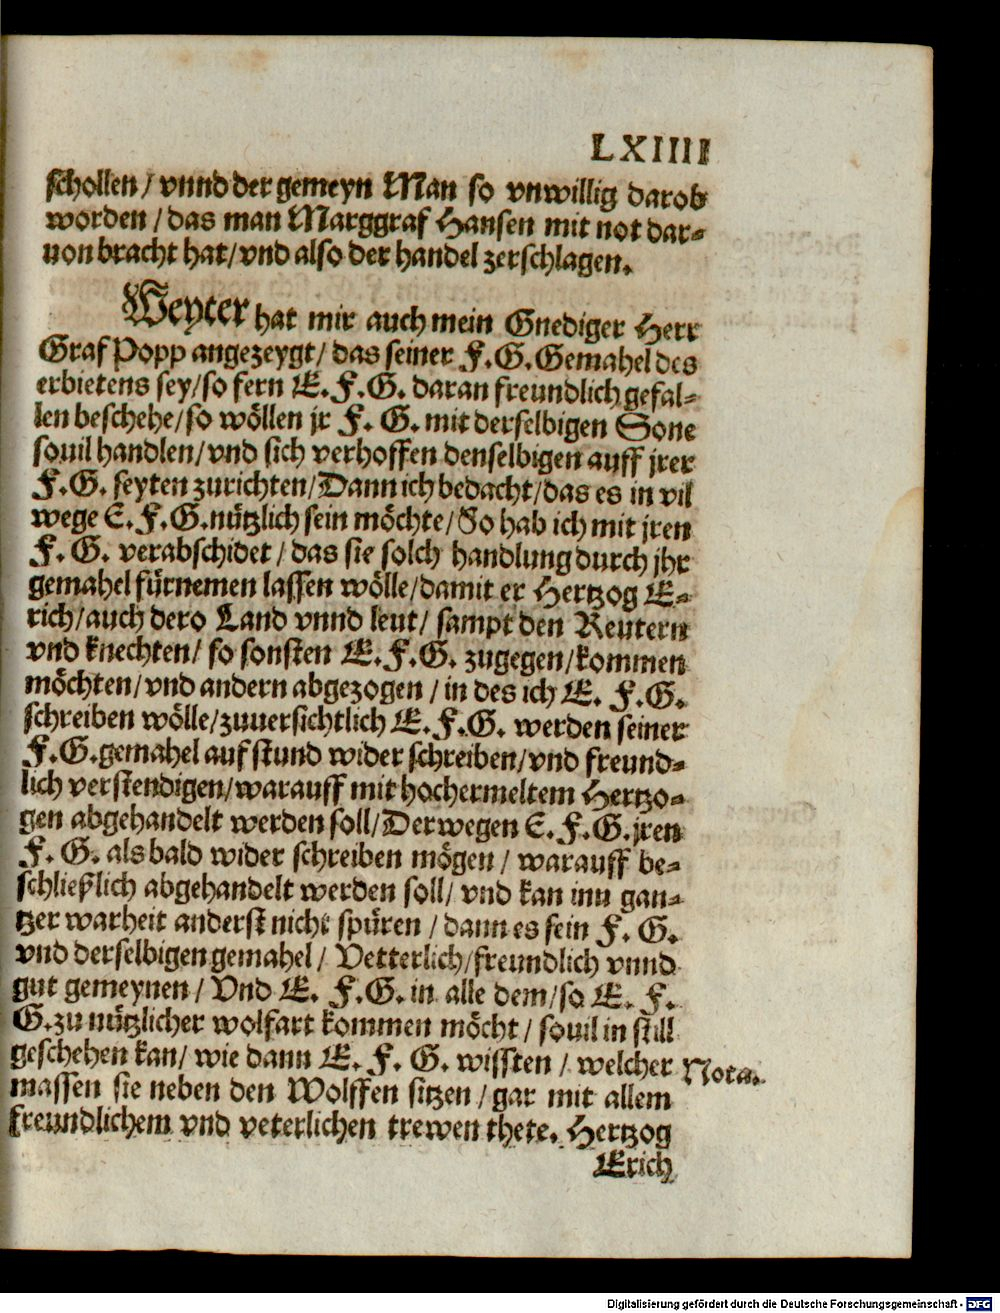 LXIIII
schollen / vnnd der gemeyn Man so vnwillig darob
worden / das man Marggraf Hansen mit not dar-
uon bracht hat / vnd also der handel zerschlagen.
Weyter hat mir auch mein Gnediger Herr
Graf Popp angezeygt / das seiner F. G. Gemahel des
erbietens sey / so fern E. F. G. daran freundlich gefal-
len beschehe / so wöllen jr F. G. mit derselbigen Sone
souil handlen / vnd sich verhoffen denselbigen auff jrer
F. G. seyten zurichten / Dann ich bedacht / das es in vil
wege E. F. G. nützlich sein möchte / So hab ich mit jren
F. G. verabschidet / das sie solch handlung durch jhr
gemahel fürnemen lassen wölle / damit er Hertzog E-
rich / auch dero Land vnnd leut / sampt den Reutern
vnd knechten / so sonsten E. F. G. zugegen / kommen
möchten / vnd andern abgezogen / in des ich E. F. G.
schreiben wölle / zuuersichtlich E. F. G. werden seiner
F. G. gemahel auf stund wider schreiben / vnd freund-
lich verstendigen / warauff mit hochermeltem Hertzo-
gen abgehandelt werden soll / Derwegen E. F. G. jren
F. G. als bald wider schreiben mögen / warauff be-
schließlich abgehandelt werden soll / vnd kan inn gan-
tzer warheit anderst nicht spüren / dann es sein F. G.
vnd derselbigen gemahel / Vetterlich / freundlich vnnd
gut gemeynen / Vnd E. F. G. in alle dem / so E. F.
G. zu nützlicher wolfart kommen möcht / souil in still
geschehen kan / wie dann E. F. G. wissten / welcher
Nota.
massen sie neben den Wolffen sitzen / gar mit allem
freundlichem vnd veterlichen trewen thete. Hertzog
Erich
Digitalisierung gefördert durch die Deutsche Forschungsgemeinschaft - DFG